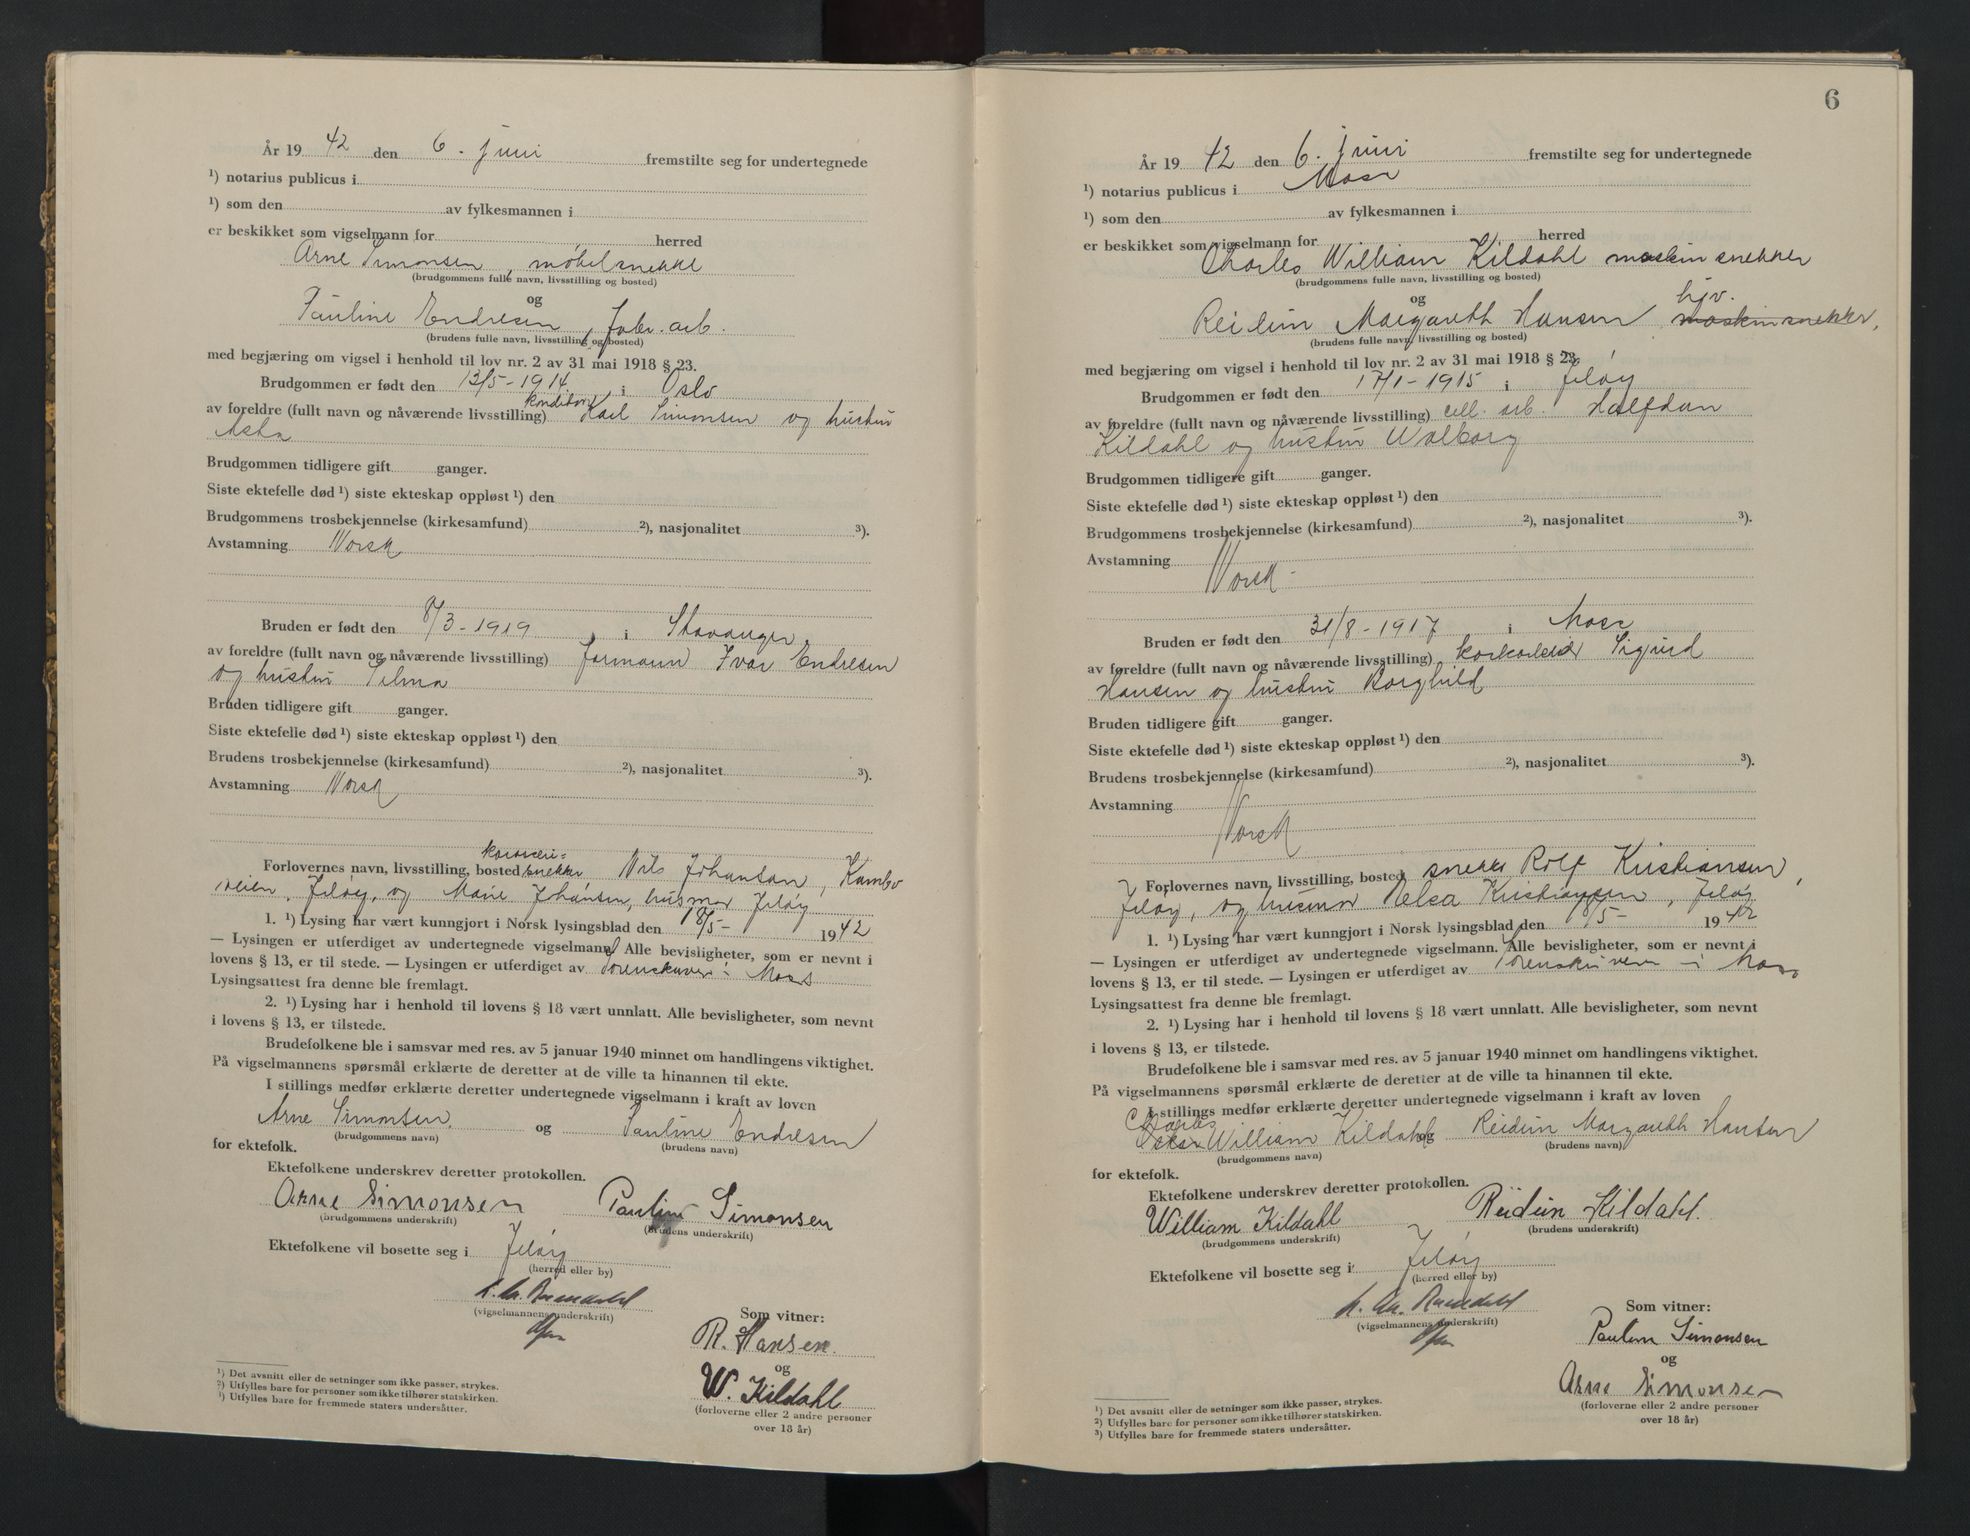 År 19 42 den 6. juni fremstilte seg for undertegnede
¹) notarius publicus i
¹) som den av fylkesmannen i
er beskikket som vigselmann for herred
Arne Simonsen, møbelsnekke
(brudgommens fulle navn, livsstilling og bosted)
og
Pauline Endresen, fabr. arb.
(brudens fulle navn, livsstilling og bosted)
med begjæring om vigsel i henhold til lov nr. 2 av 31 mai 1918 § 23.
Brudgommen er født den 13/5-1914 i Oslo
konditor
av foreldre (fullt navn og nåværende livsstilling) Karl Simonsen og hustru
Asta
Brudgommen tidligere gift ganger.
Siste ektefelle død ¹) siste ekteskap oppløst ¹) den
Brudgommens trosbekjennelse (kirkesamfund) ²), nasjonalitet ³).
Avstamning Norsk
Bruden er født den 8/3-1919 i Stavanger
av foreldre (fullt navn og nåværende livsstilling) formann Ivar Endresen
og hustru Tilma
Bruden tidligere gift ganger.
Siste ektefelle død ¹) siste ekteskap oppløst ¹) den
Brudens trosbekjennelse (kirkesamfund) ²), nasjonalitet ³).
Avstamning Norsk
karosseri=
Forlovernes navn, livsstilling, bosted snekker Nils Johansen, Kambo
veien, Jeløy, og Marie Johansen, husmor Jeløy
1. ¹) Lysing har vært kunngjort i Norsk lysingsblad den 18/5- 1942
— Lysingen er utferdiget av undertegnede vigselmann. Alle bevisligheter, som er nevnt i
lovens § 13, er til stede. — Lysingen er utferdiget av Sorenskriveren i Moss
Lysingsattest fra denne ble fremlagt.
2. ¹) Lysing har i henhold til lovens § 18 vært unnlatt. Alle bevisligheter, som nevnt
i lovens § 13, er tilstede.
Brudefolkene ble i samsvar med res. av 5 januar 1940 minnet om handlingens viktighet.
På vigselmannens spørsmål erklærte de deretter at de ville ta hinannen til ekte.
I stillings medfør erklærte deretter undertegnede vigselmann i kraft av loven
Arne Simonsen og Pauline Endresen
(brudgommens navn) (brudens navn)
for ektefolk.
Ektefolkene underskrev deretter protokollen.
Arne Simonsen Pauline Simonsen
(brudgommens underskrift) (brudens underskrift)
Ektefolkene vil bosette seg i Jeløy
(herred eller by)
(vigselmannens underskrift)
Som vitner:
R. Hansen.
og
W. Kildahl
(forloverne eller 2 andre personer
over 18 år)
¹) Det avsnitt eller de setninger som ikke passer, strykes.
²) Utfylles bare for personer som ikke tilhører statskirken.
¹) Utfylles bare for fremmede staters undersåtter.
6
År 19 42 den 6. juni fremstilte seg for undertegnede
¹) notarius publicus i Moss
¹) som den av fylkesmannen i
er beskikket som vigselmann for herred
Charles William Kildahl maskinsnekker
(brudgommens fulle navn, livsstilling og bosted)
og hjv.
Reidun Margareth Hansen maskinsnekker,
(brudens fulle navn, livsstilling og bosted)
med begjæring om vigsel i henhold til lov nr. 2 av 31 mai 1918 § 23.
Brudgommen er født den 17/1-1915 i Jeløy
av foreldre (fullt navn og nåværende livsstilling) cell. arb. Halfdan
Kildahl og hustru Walborg
Brudgommen tidligere gift ganger.
Siste ektefelle død ¹) siste ekteskap oppløst ¹) den
Brudgommens trosbekjennelse (kirkesamfund) ²), nasjonalitet ³).
Avstamning
Norsk -
Bruden er født den 31/8-1917 i Moss
av foreldre (fullt navn og nåværende livsstilling) korkarbeider Sigurd
Hansen og hustru Borghild
Bruden tidligere gift ganger.
Siste ektefelle død ¹) siste ekteskap oppløst ¹) den
Brudens trosbekjennelse (kirkesamfund) ²), nasjonalitet ³).
Avstamning
Norsk
Forlovernes navn, livsstilling, bosted snekker Rolf Kristiansen,
Jeløy, og husmor Kristiansen, Jeløy
1. ¹) Lysing har vært kunngjort i Norsk lysingsblad den 18/5- 1942
— Lysingen er utferdiget av undertegnede vigselmann. Alle bevisligheter, som er nevnt i
lovens § 13, er til stede. — Lysingen er utferdiget av Sorenskriveren i Moss
Lysingsattest fra denne ble fremlagt.
2. ¹) Lysing har i henhold til lovens § 18 vært unnlatt. Alle bevisligheter, som nevnt
i lovens § 13, er tilstede.
Brudefolkene ble i samsvar med res. av 5 januar 1940 minnet om handlingens viktighet.
På vigselmannens spørsmål erklærte de deretter at de ville ta hinannen til ekte.
I stillings medfør erklærte deretter undertegnede vigselmann i kraft av loven
Charles
William Kildahl og Reidun Margareth Hansen
(brudgommens navn) (brudens navn)
for ektefolk.
Ektefolkene underskrev deretter protokollen.
William Kildahl Reidun Kildahl.
(brudgommens underskrift) (brudens underskrift)
Ektefolkene vil bosette seg i Jeløy
(herred eller by)
(vigselmannens underskrift)
Som vitner:
Paulin Simonsen
og
Arne Simonsen
(forloverne eller 2 andre personer
over 18 år)
¹) Det avsnitt eller de setninger som ikke passer, strykes.
²) Utfylles bare for personer som ikke tilhører statskirken.
³) Utfylles bare for fremmede staters undersåtter.